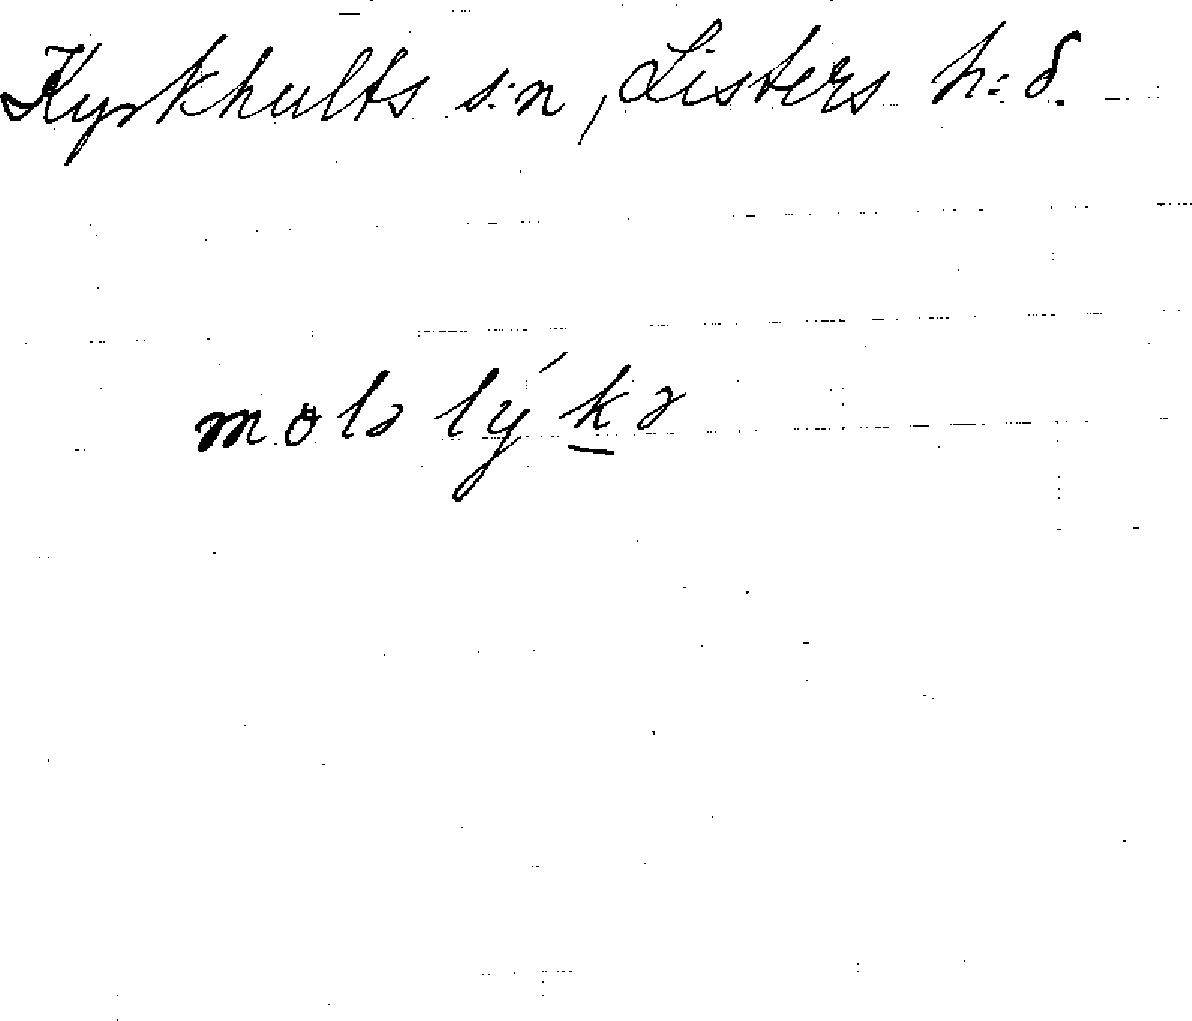 Kyrkhults s:n, Listers h:d.
molə lýkə